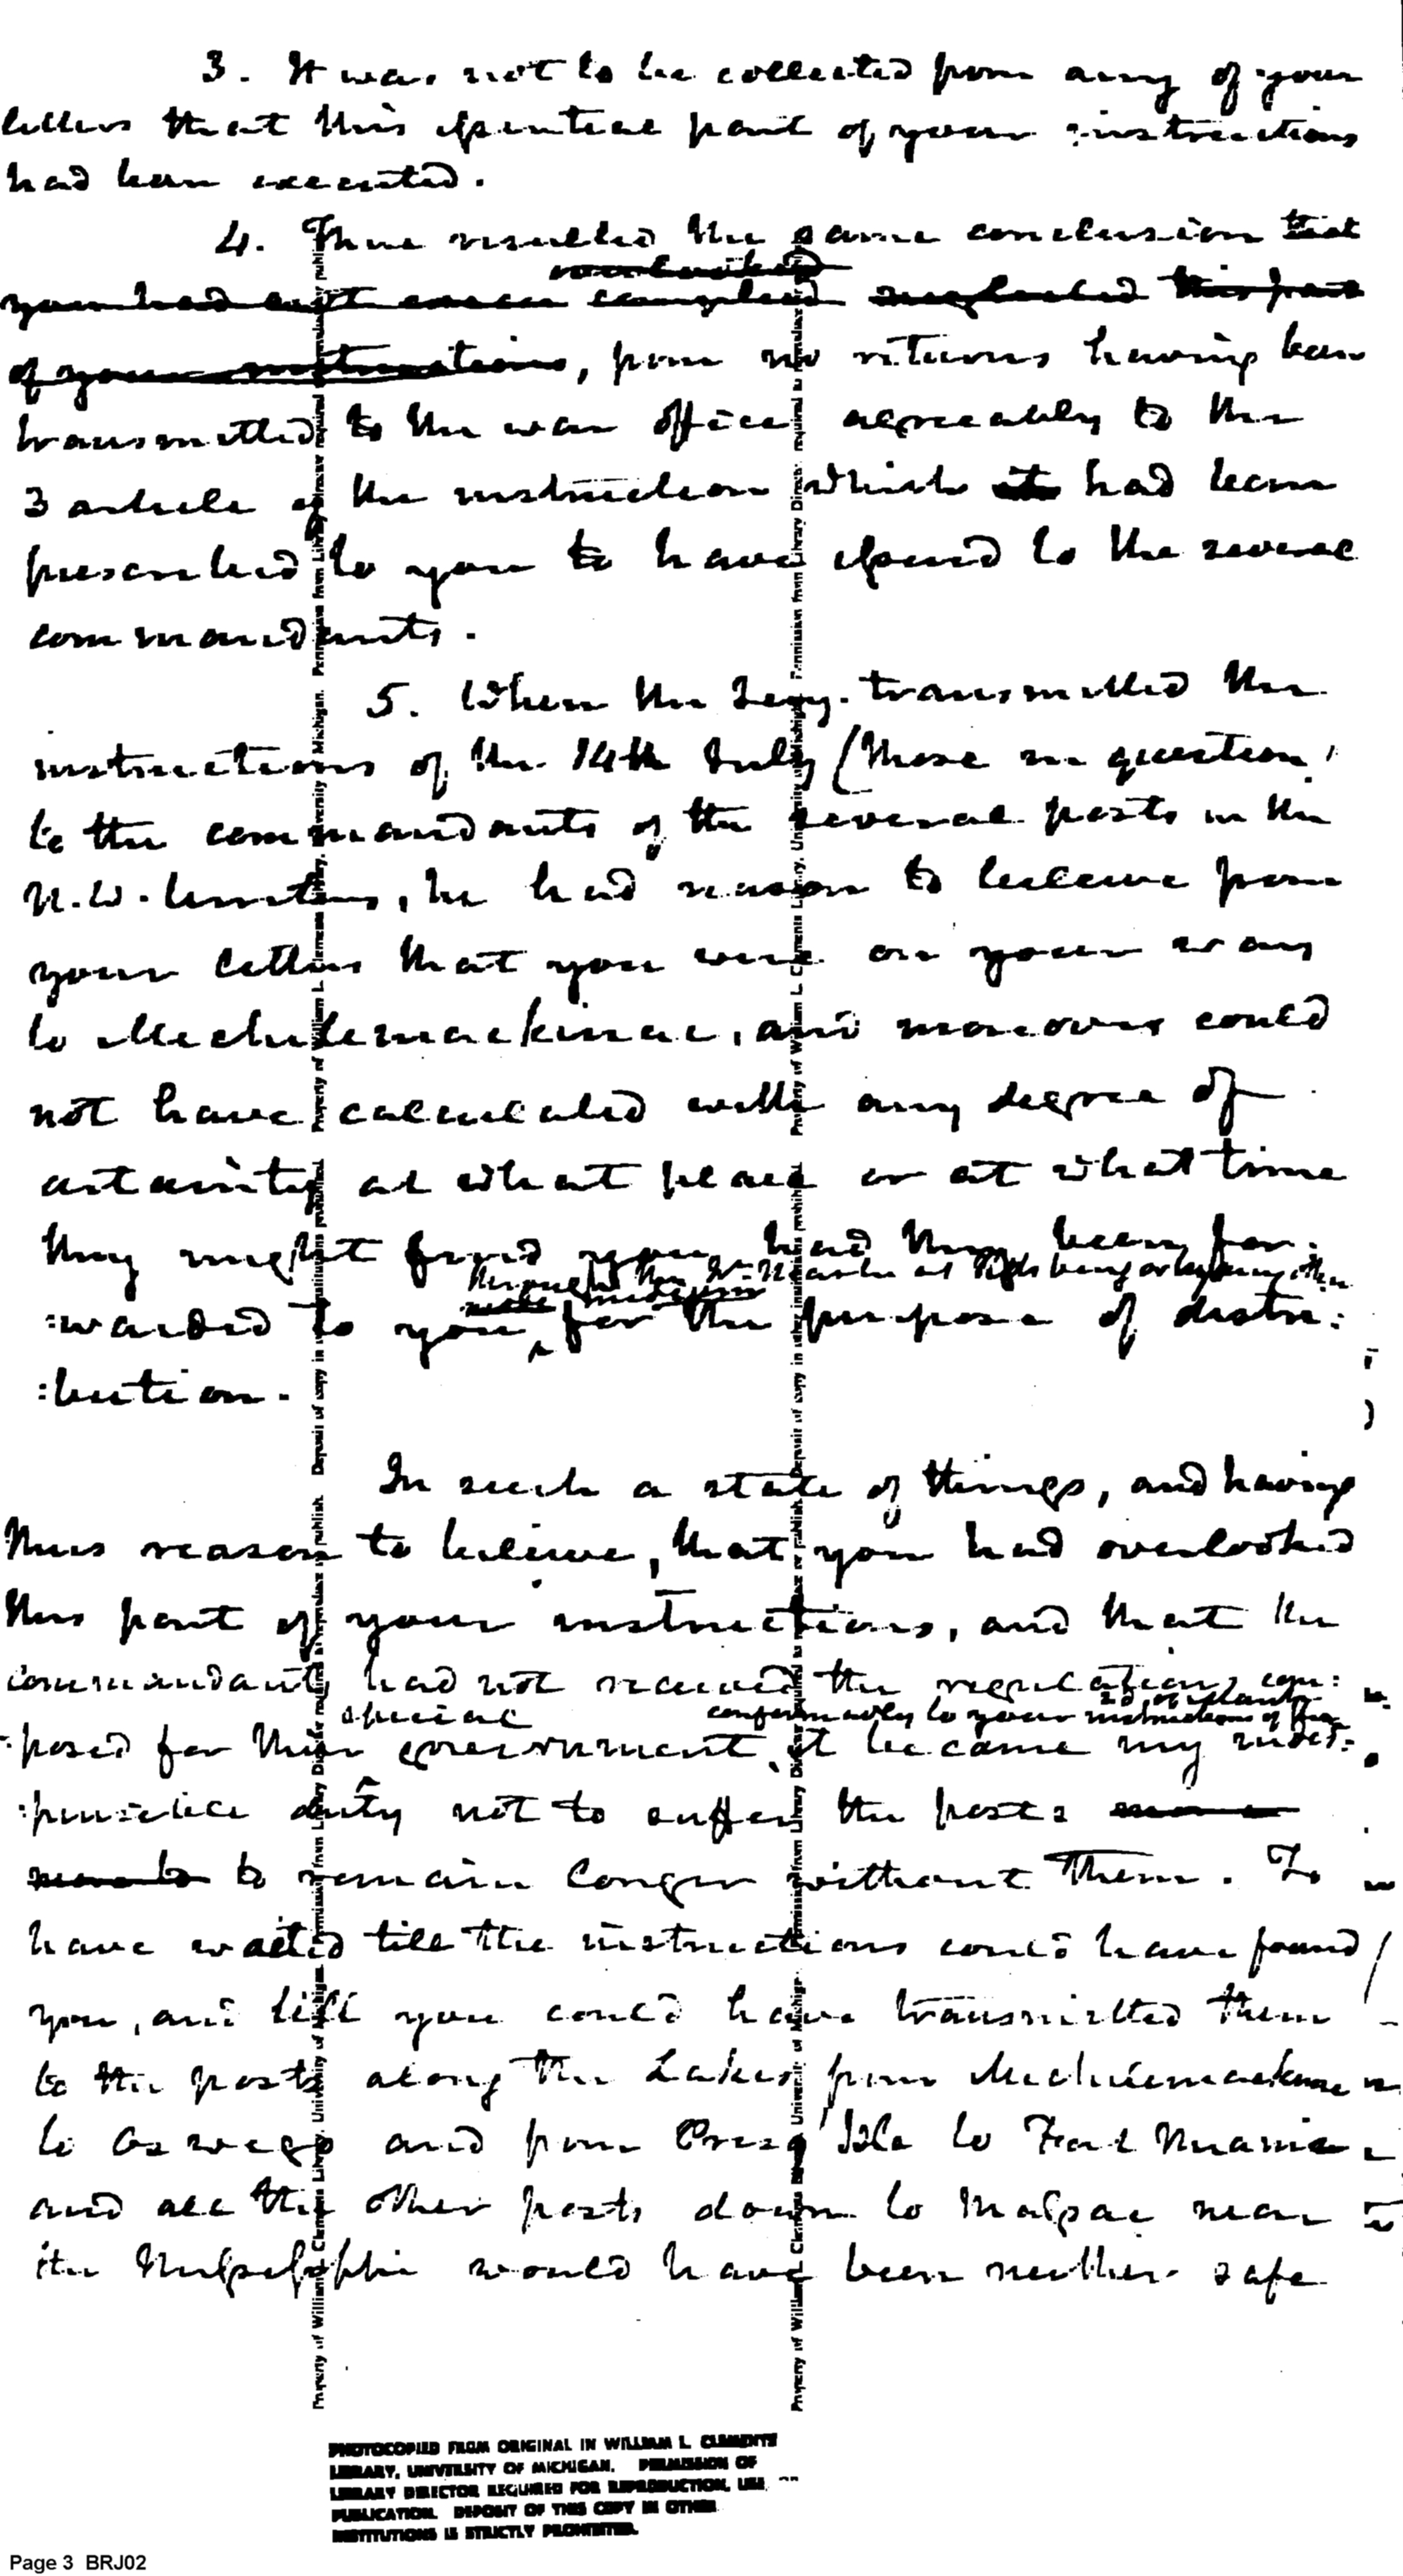 3. It was not to be collected from any of your
letters that this essential part of your instructions
had been executed.
4. There resulted the same conclusion that
overlooked
you had not complied neglected this part
of your instructions, from no returns having been
transmitted to the war office agreeably to the
3 article of the instruction which it had been
prescribed to you to have issued to the several
commandants.
5. When the Secy. transmitted the
instructions of the 14th July (those in question)
to the commandants of the several posts in the
N.W. territory, he had reason to believe from
your letters that you were on your way
to Michilemackinac, and moreover could
not have calculated with any degree of
certainty at what place or at what time
they might find you, had they been for:
through the Qr. Master at Pittsburg or by any other
medium
:warded to you for the purpose of distri:
:bution.
In such a state of things, and having
thus reason to believe, that you had overlooked
this part of your instructions, and that the
commandants had not received the regulations com:
special conformably to your instructions of
:posed for their government, it became my indis:
:pensible duty not to suffer the posts
to remain longer without them. To
have waited till the instructions could have found
you, and till you could have transmitted them
to the posts along the Lakes from Michilemackinac
to Oswego and from Presq' Isle to Fort Miamis
and all the other posts down to Massac near
the Mississippi would have been neither safe
Property of William L. Clements Library, University of Michigan. Permission from Library Director required to reproduce or publish. Deposit of copy in other institutions prohibited.
PHOTOCOPIED FROM ORIGINAL IN WILLIAM L. CLEMENTS
LIBRARY, UNIVERSITY OF MICHIGAN. PERMISSION OF
LIBRARY DIRECTOR REQUIRED FOR REPRODUCTION, USE
PUBLICATION. DEPOSIT OF THIS COPY IN OTHER
INSTITUTIONS IS STRICTLY PROHIBITED.
Page 3 BRJ02